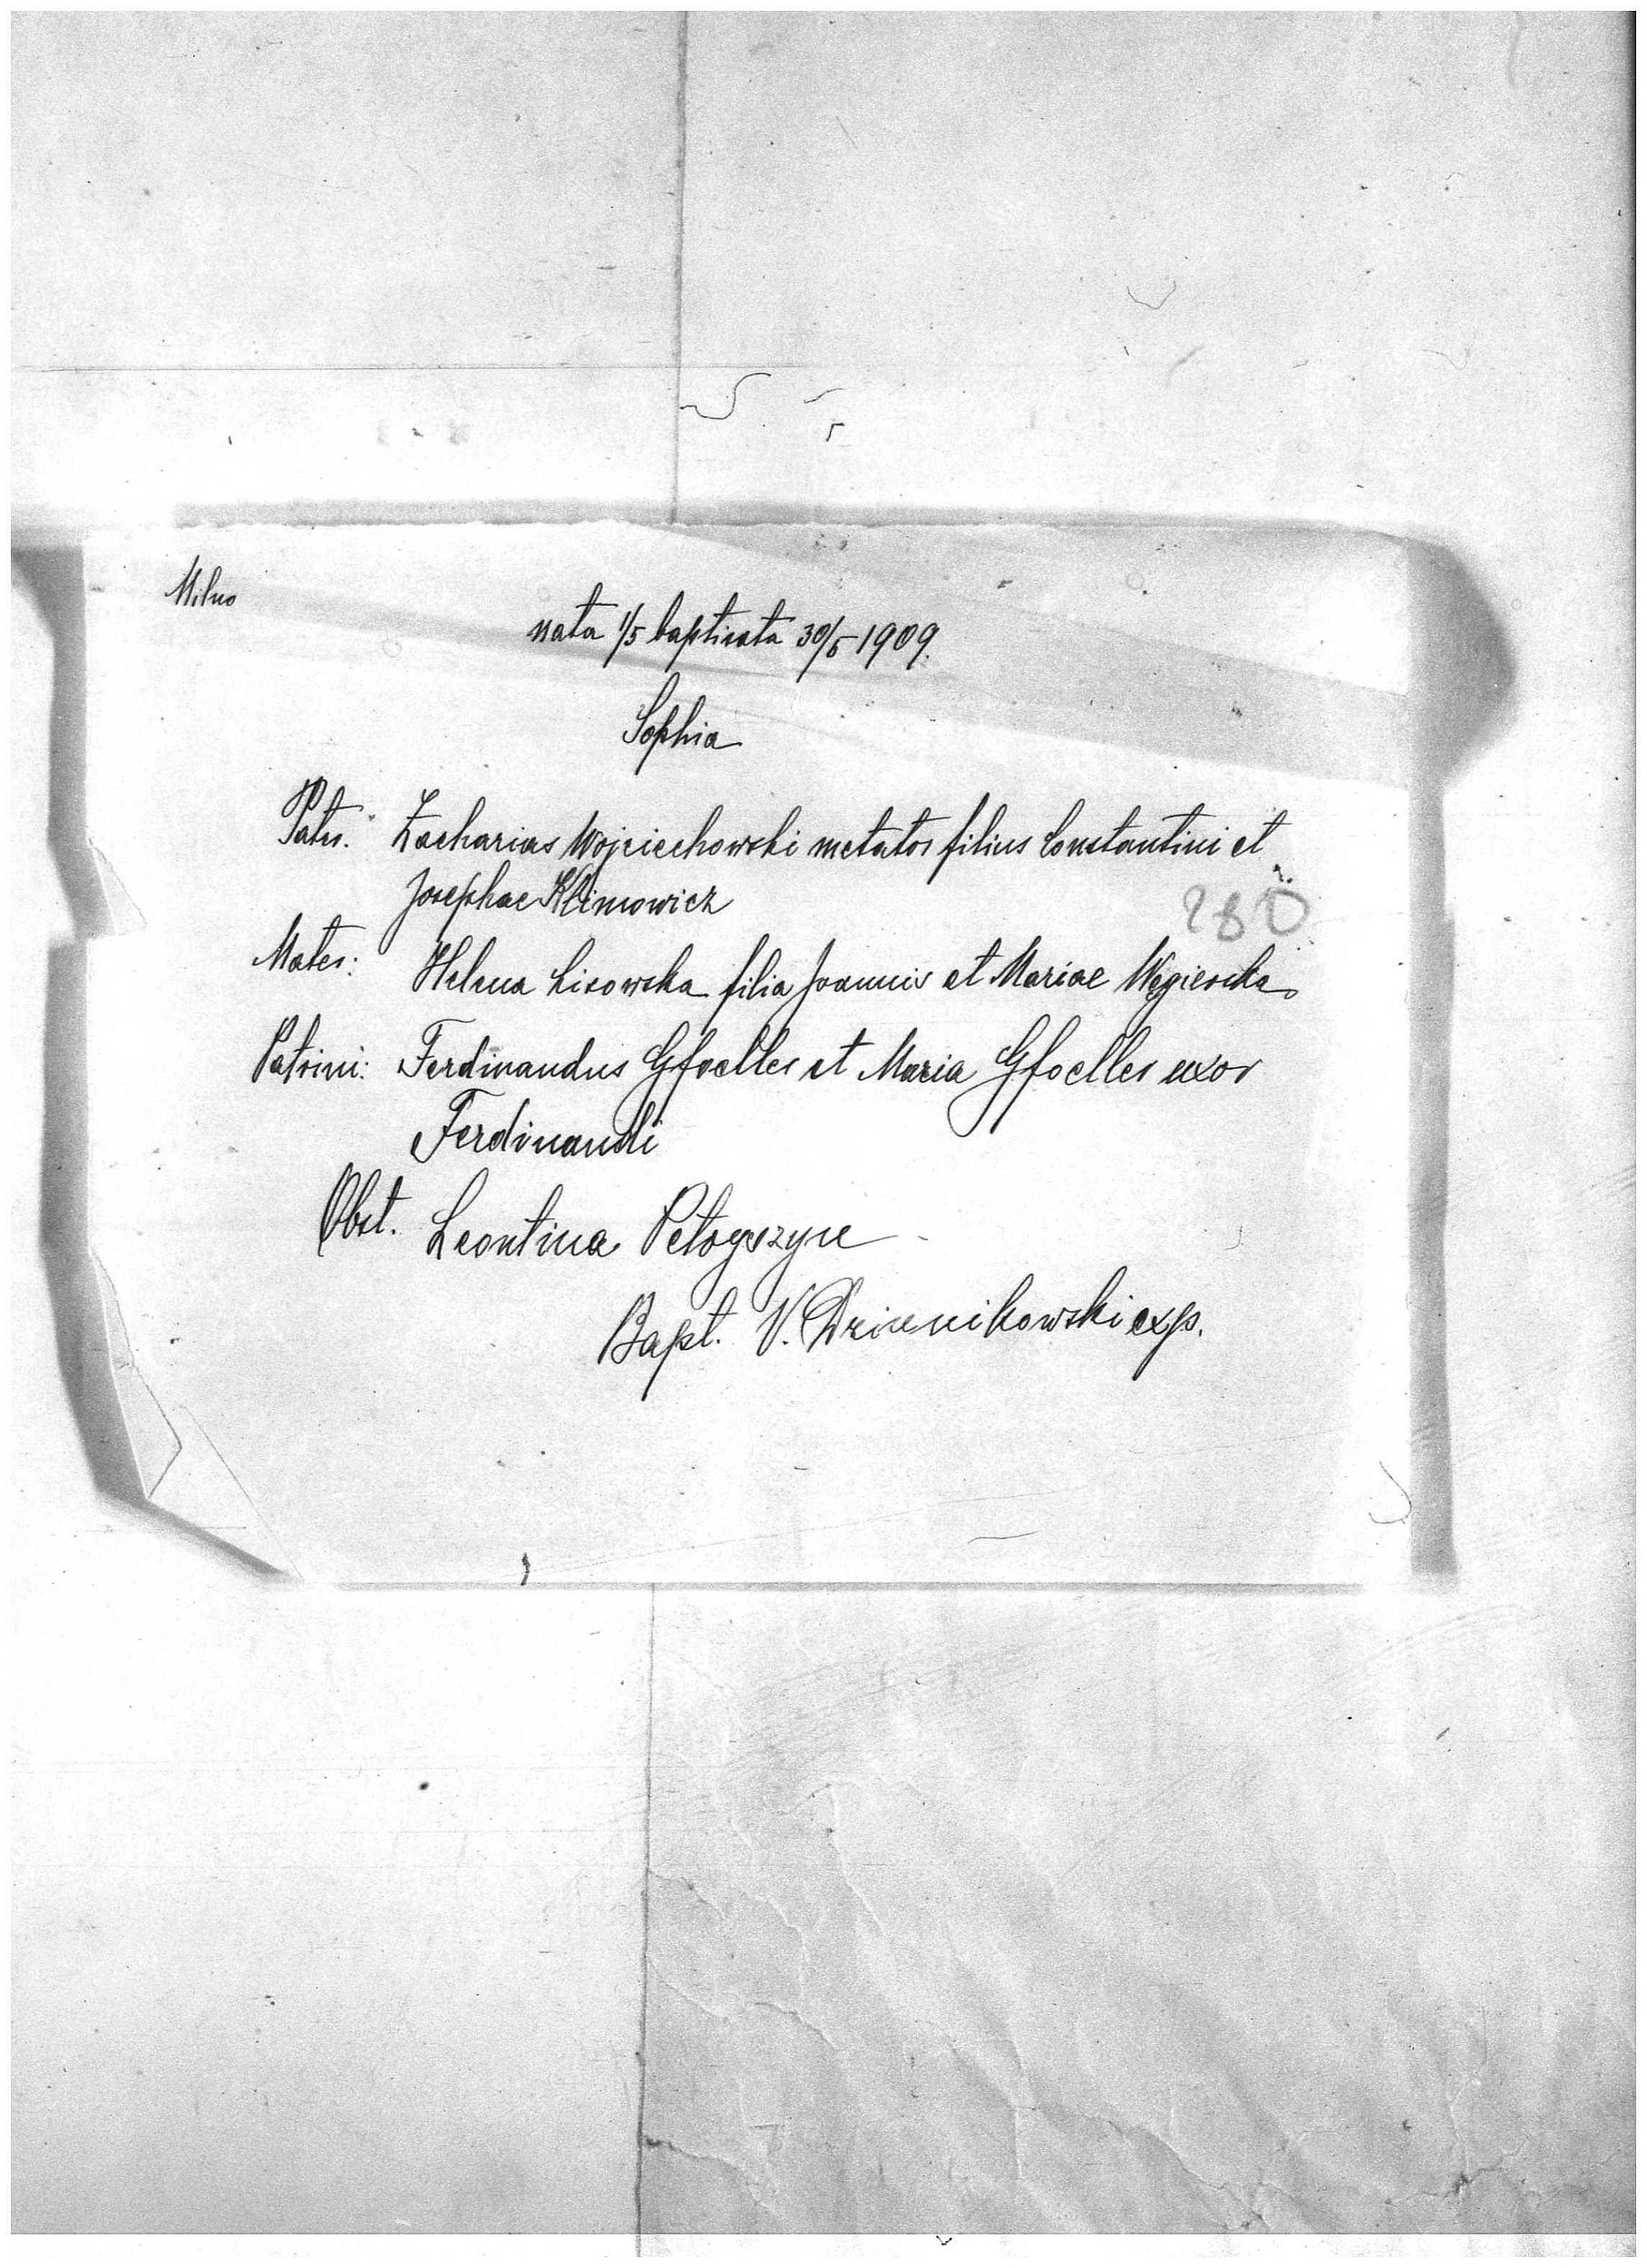 Milno
nata 1/5 baptisata 30/5 1909.
Sophia
Pater. Zacharias Wojciechowski metator filius Constantini et
Josephae Klimowicz
280
Mater: Helena Lisowska filia Joannis et Mariae Węgierska
Patrini: Ferdinandus Gfoeller et Maria Gfoeller uxor
Ferdinandi
Obst. Leontina
Bapt. V. Dziennikowski exp.